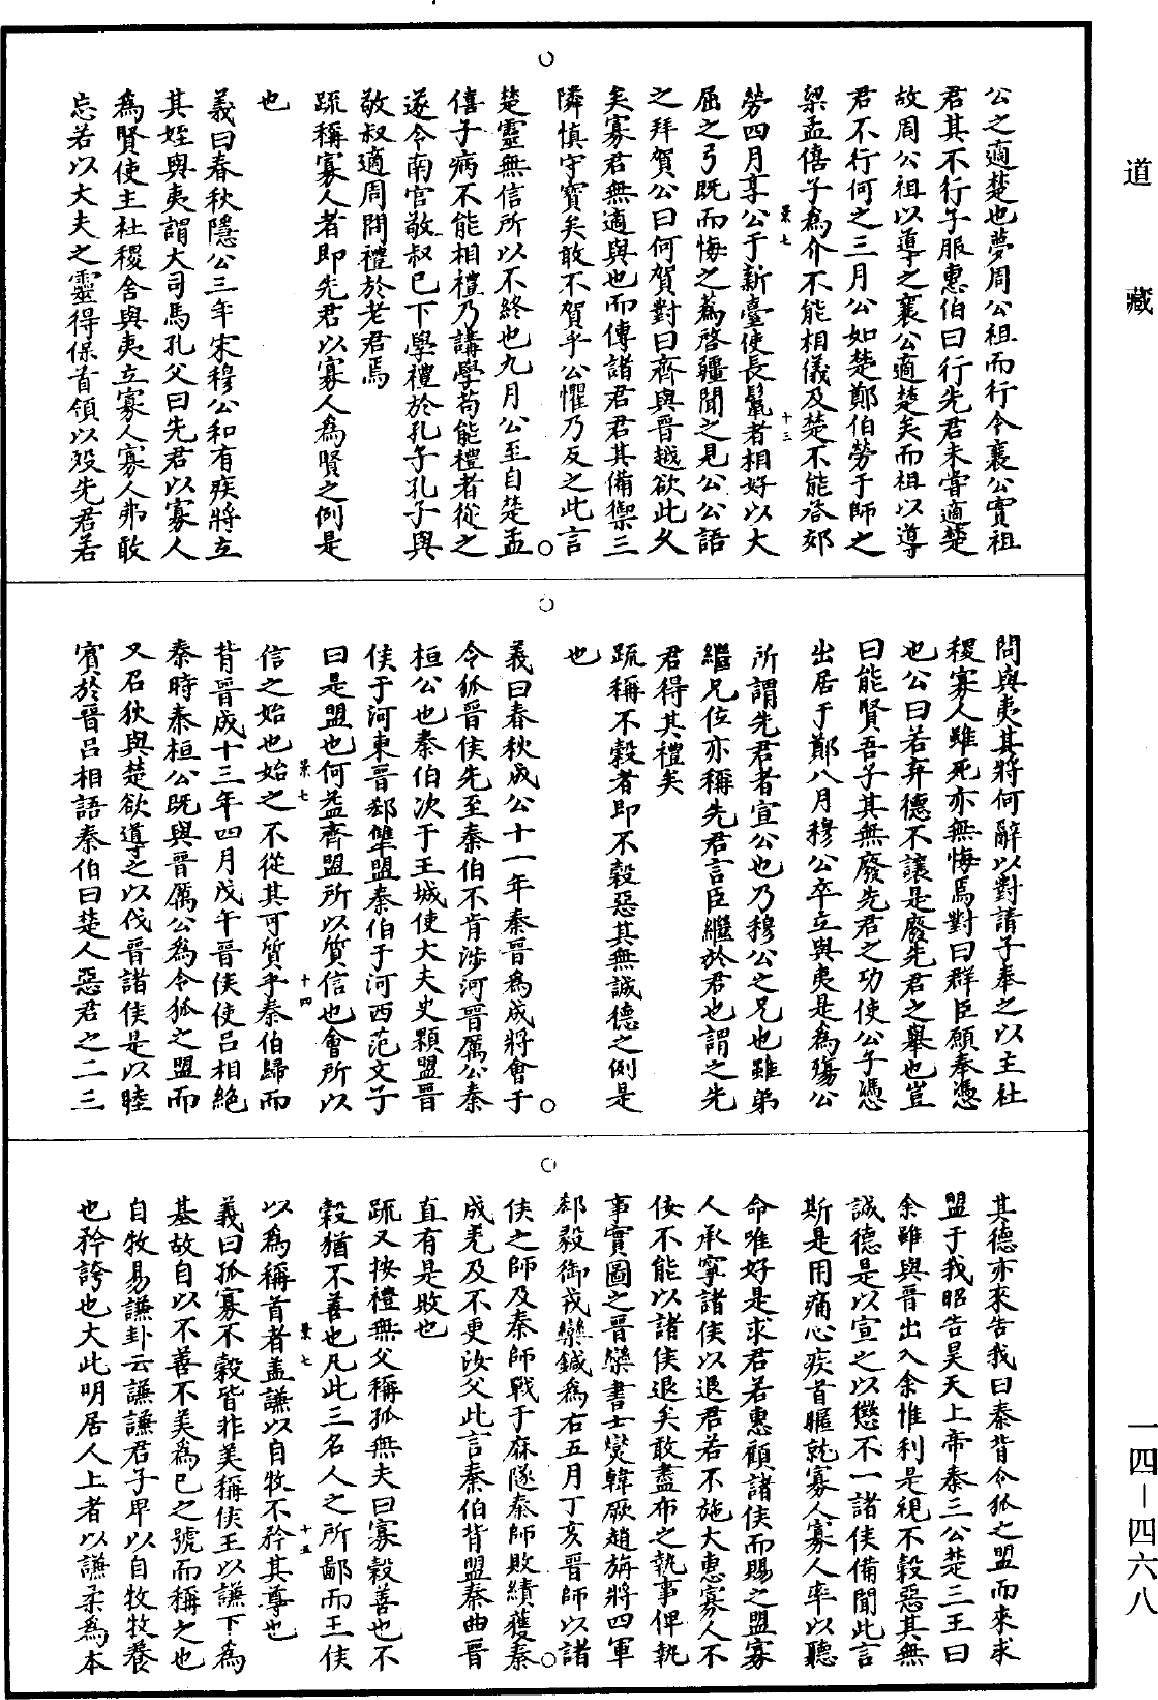 道藏
公之適楚也夢周公祖而行今襄公實祖
君其不行子服惠伯曰行先君未嘗適楚
故周公祖以導之襄公適楚矣而祖以導
君不行何之三月公如楚鄭伯勞于師之
梁孟僖子為介不能相儀及楚不能荅郊
景七 十三
勞四月享公于新臺使長鬣者相好以大
屈之弓既而悔之薳啓疆聞之見公公語
之拜賀公曰何賀對曰齊與晉越欲此久
矣寡君無適與也而傳諸君君其備禦三
隣慎守寶矣敢不賀乎公懼乃反之此言
楚靈無信所以不終也九月公至自楚孟
僖子病不能相禮乃講學苟能禮者從之
遂令南宮敬叔已下學禮於孔子孔子與
敬叔適周問禮於老君焉
疏稱寡人者即先君以寡人為賢之例是
也
義曰春秋隱公三年宋穆公和有疾將立
其姪與夷謂大司馬孔父曰先君以寡人
為賢使主社稷舍與夷立寡人寡人弗敢
忘若以大夫之靈得保首領以殁先君若
問與夷其將何辭以對請子奉之以主社
稷寡人雖死亦無悔焉對曰群臣願奉憑
也公曰若弃德不讓是廢先君之舉也豈
曰能賢吾子其無廢先君之功使公子憑
出居于鄭八月穆公卒立與夷是為殤公
所謂先君者宣公也乃穆公之兄也雖弟
繼兄位亦稱先君言臣繼於君也謂之先
君得其禮矣
疏稱不穀者即不穀惡其無誠德之例是
也
義曰春秋成公十一年秦晉為成將會于
令狐晉侯先至秦伯不肯涉河晉厲公秦
桓公也秦伯次于王城使大夫史顆盟晉
侯于河東晉郄犨盟秦伯于河西范文子
曰是盟也何益齊盟所以質信也會所以
景七 十四
信之始也始之不從其可質乎秦伯歸而
背晉成十三年四月戊午晉侯使呂相絕
秦時秦桓公既與晉厲公為令狐之盟而
又召狄與楚欲導之以伐晉諸侯是以睦
賓於晉呂相語秦伯曰楚人惡君之二三
其德亦來告我曰秦背令狐之盟而來求
盟于我昭告昊天上帝秦三公楚三王曰
余雖與晉出入余惟利是視不穀惡其無
誠德是以宣之以懲不一諸侯備聞此言
斯是用痛心疾首暱就寡人寡人率以聽
命唯好是求君若惠顧諸侯而賜之盟寡
人承寧諸侯以退君若不施大惠寡人不
佞不能以諸侯退矣敢盡布之執事俾執
事實圖之晉欒書士燮韓厥趙旃將四軍
郄毅御戎欒鍼為右五月丁亥晉師以諸
侯之師及秦師戰于麻隧秦師敗績獲秦
成差及不更汝父此言秦伯背盟秦曲晉
直有是敗也
疏又按禮無父稱孤無夫曰寡穀善也不
穀猶不善也凡此三名人之所鄙而王侯
景七 十五
以為稱首者盖謙以自牧不矜其尊也
義曰孤寡不穀皆非美稱侯王以謙下為
基故自以不善不美為己之號而稱之也
自牧易謙卦云謙謙君子卑以自牧牧養
也矜誇也大此明居人上者以謙柔為本
一四—四六八